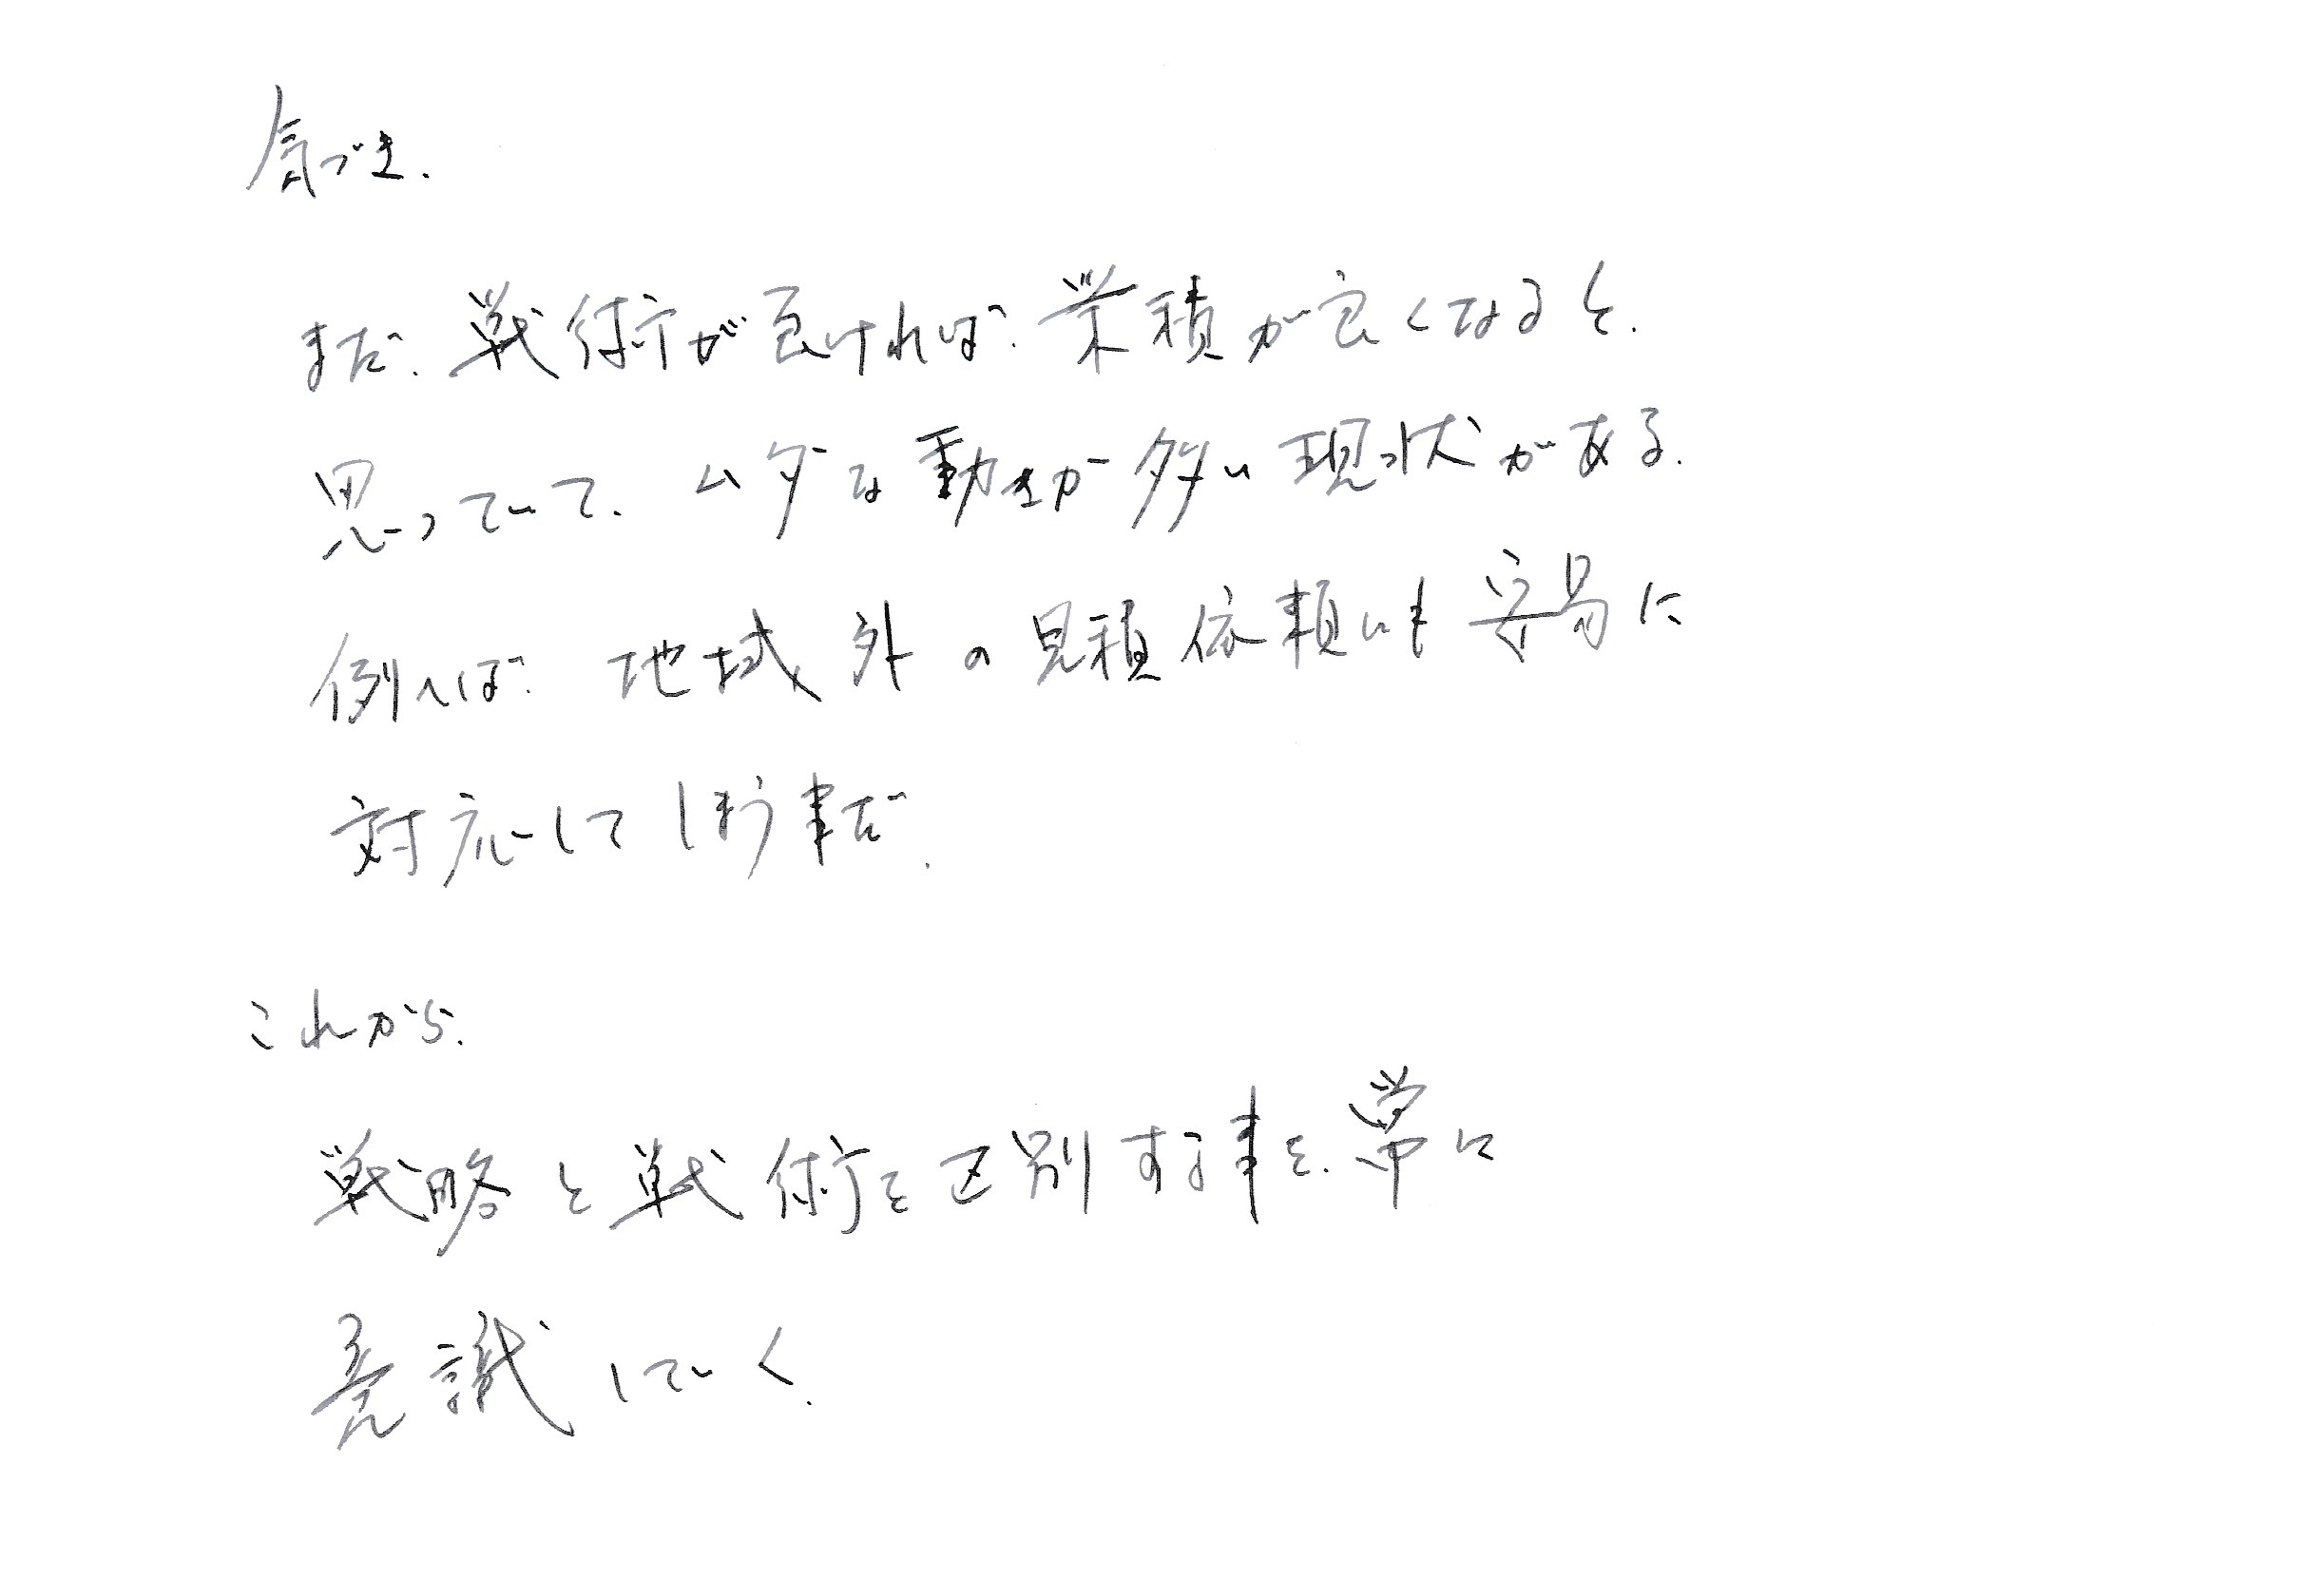 気づき.
まだ、戦術が良ければ、業積が良くなると、
思っていて、ムダな動きが多い現状がある。
例へば、地域外の見積依頼にも安易に
対応してしまう事だ。
これから、
戦略と戦術を区別する事を、常に
意識していく。